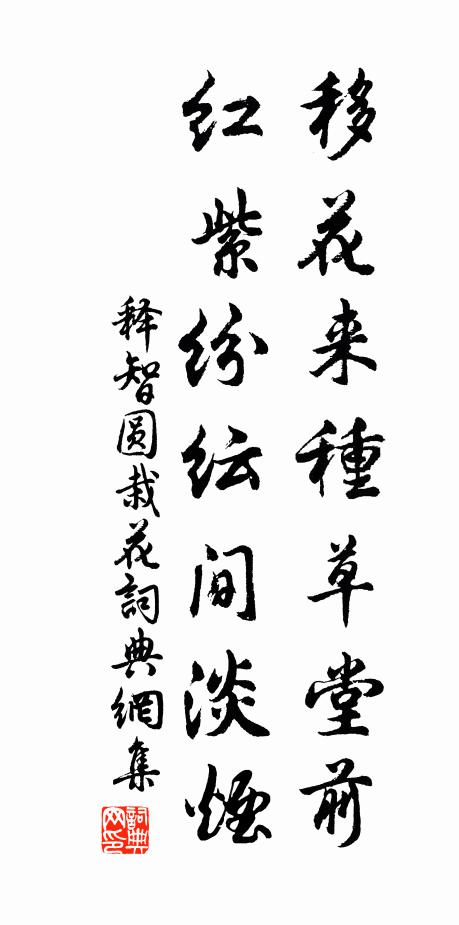 移花来種草堂前
红紫纷纭間淡煙
释智圆栽花詞典網集
詞典网印